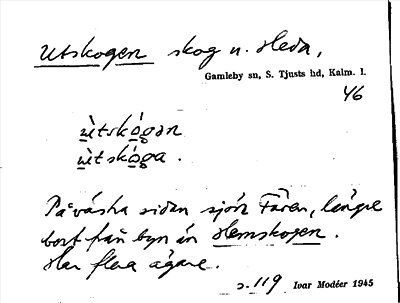 Utskogen skog u. Heda,
Gamleby sn, S. Tjusts hd, Kalm. l.
46
ùtskógan
ùtskóga.
På västra sidan sjön Fären, längre
bort från byn än Hemskogen.
Har flera ägare.
s. 119 Ivar Modéer 1945